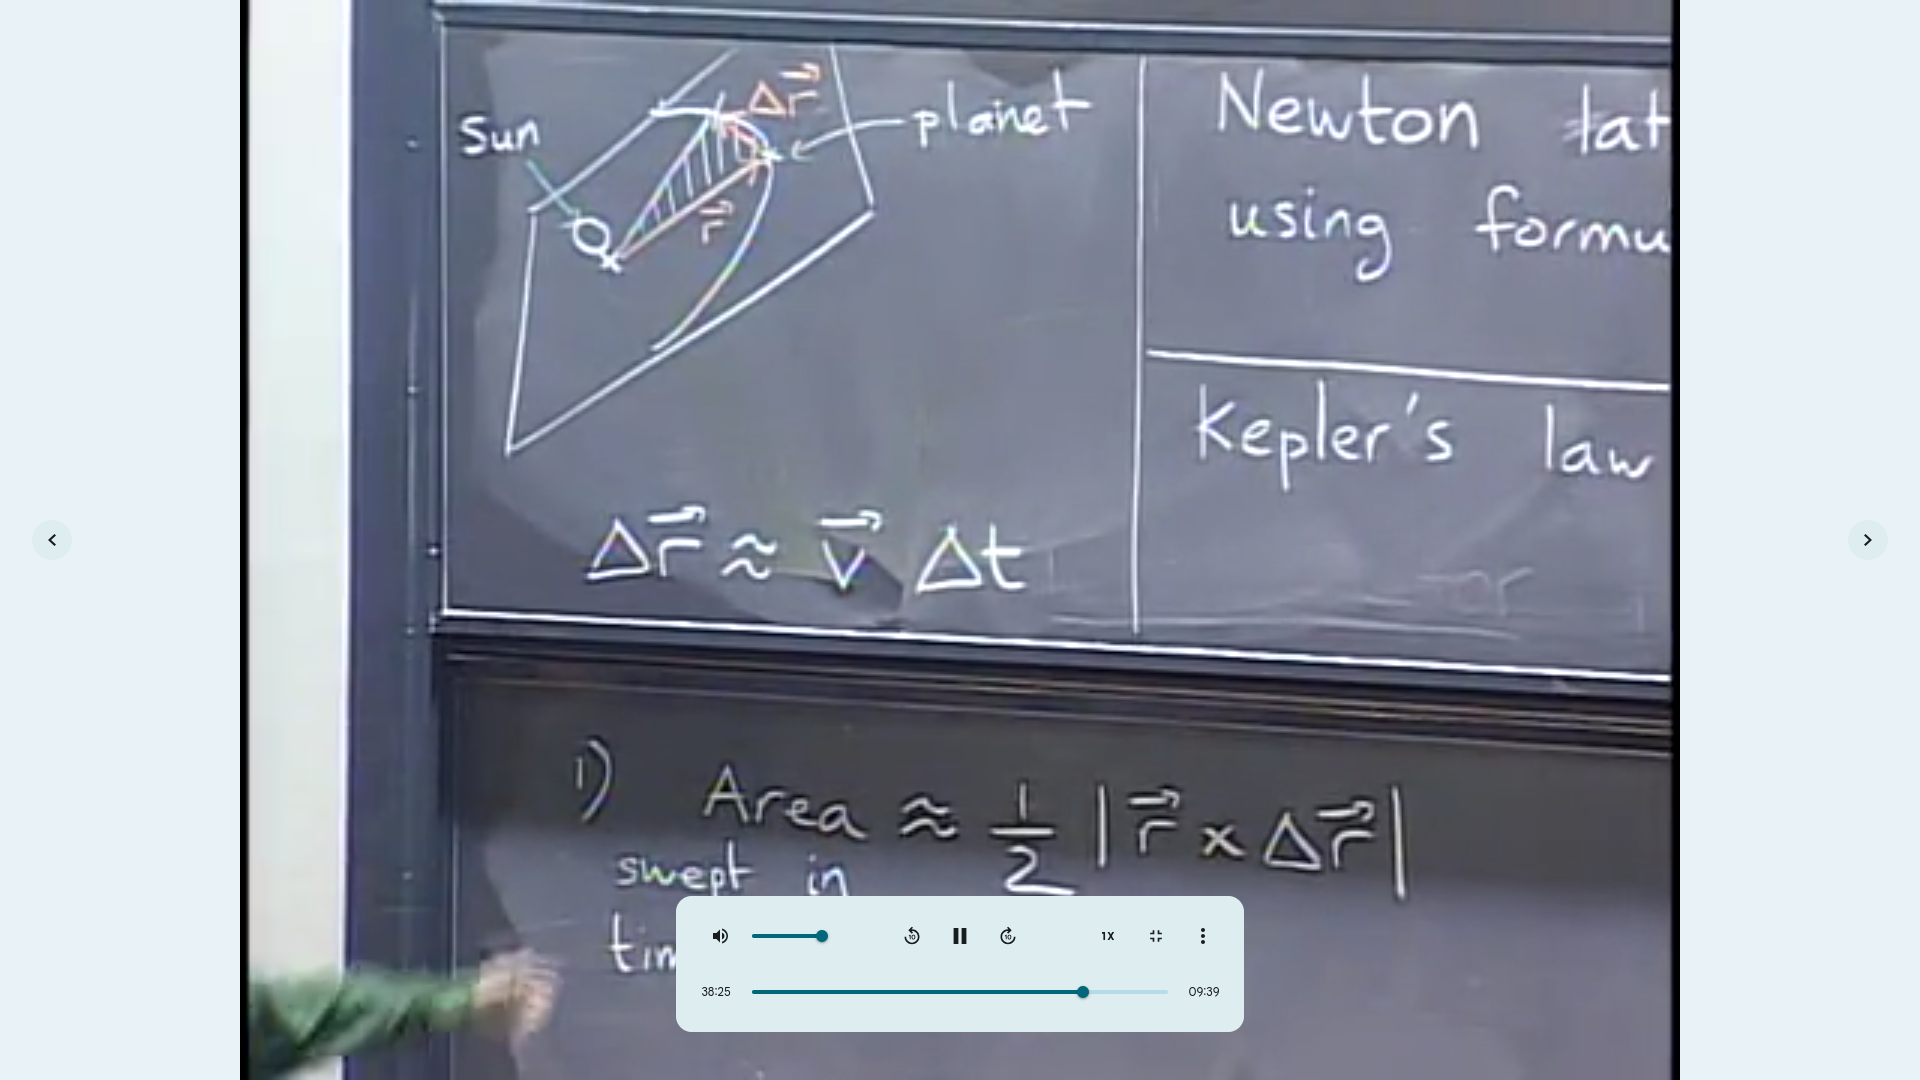 Sun
Δr⃗
planet
r⃗
Δr⃗ ≈ v⃗ Δt
Newton lat
using formu
Kepler's law
1) Area ≈ 1/2 |r⃗ × Δr⃗|
swept in
tim
1X
38:25
09:39